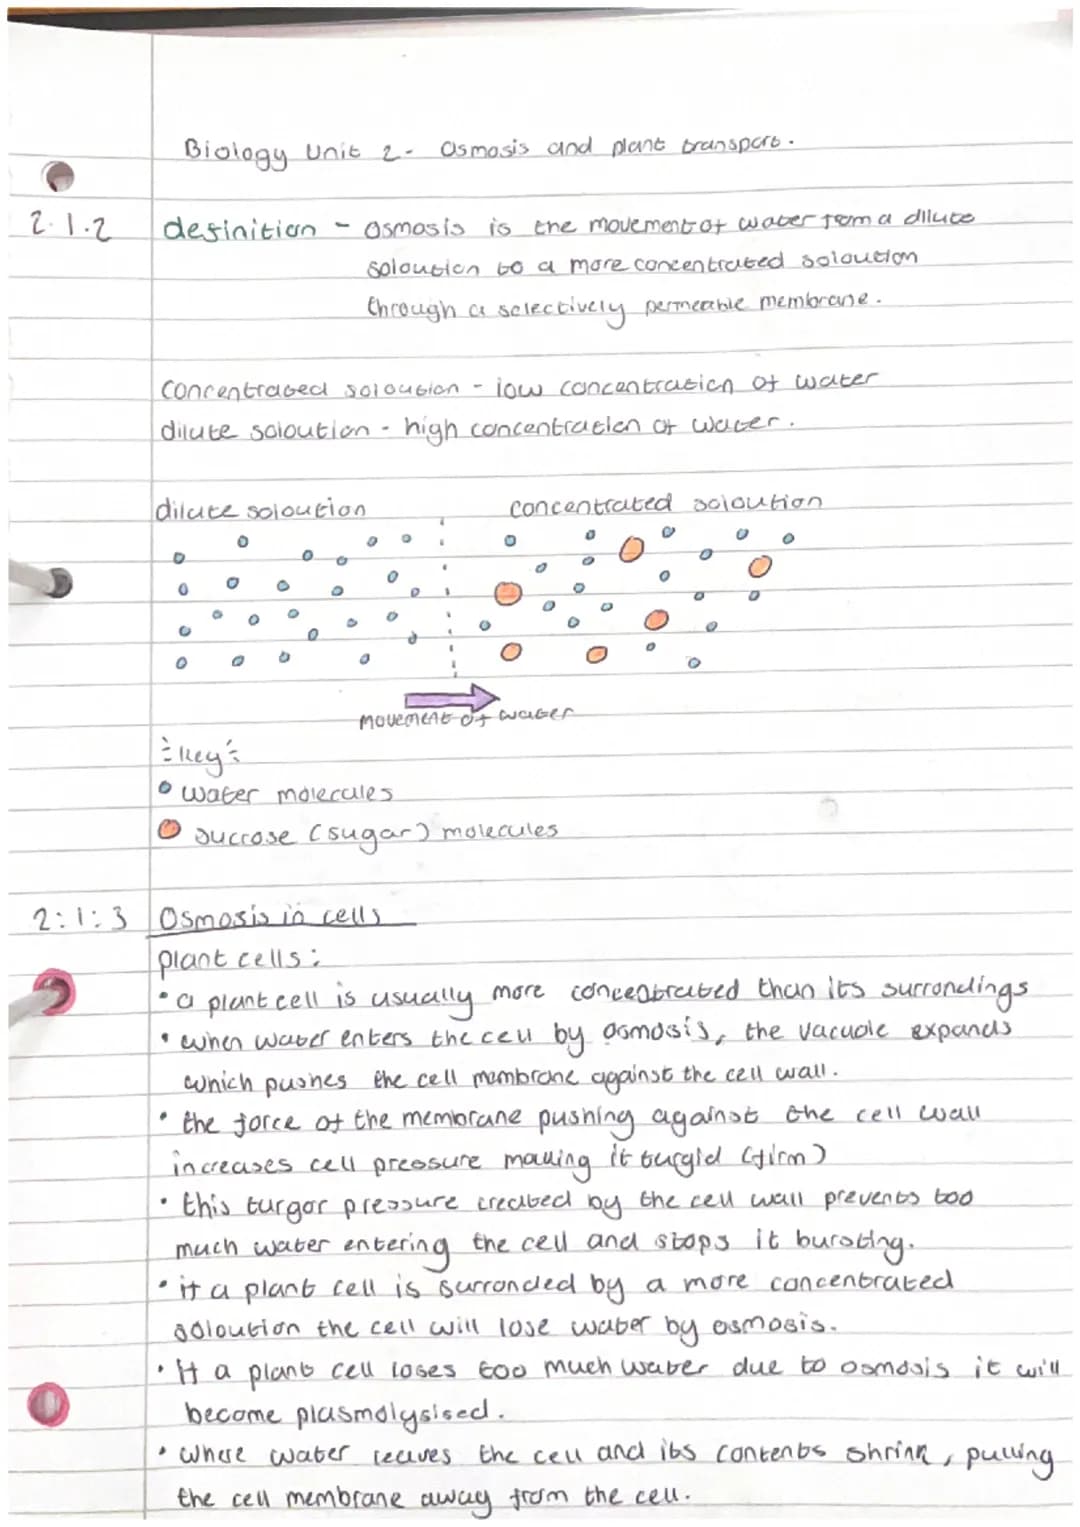 Biology Unit 2- Osmosis and plant transport.
2.1.2 definition - osmosis is the movement of water from a dilute
soloution to a more concentrated soloution
through a selectively permeable membrane.
concentrated soloution - low concentration of water
dilute soloution - high concentration of water.
dilute soloution concentrated soloution
movement of water
key
water molecules
sucrose (sugar) molecules
2:1:3 Osmosis in cells
plant cells:
• a plant cell is usually more concentrated than its surrondings
• when water enters the cell by osmosis, the vacuole expands
which pushes the cell membrane against the cell wall.
• the force of the membrane pushing against the cell wall
increases cell pressure making it turgid (firm)
• this turgor pressure created by the cell wall prevents too
much water entering the cell and stops it bursting.
• if a plant cell is surronded by a more concentrated
soloution the cell will lose water by osmosis.
• If a plant cell loses too much water due to osmosis it will
become plasmolysised.
• where water leaves the cell and its contents shrink, pulling
the cell membrane away from the cell.